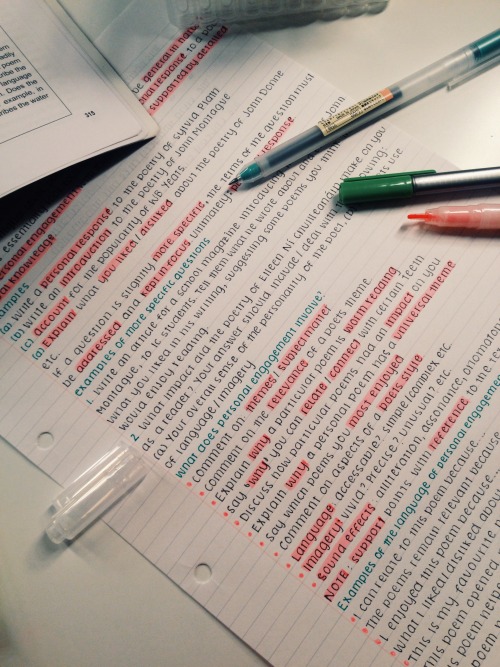 adily
poem
ribe the
language
d. Does the
example, in
ribes the water
315
be general in nature
personal response to a po
supported by detailed
essential
personal engagement
examples
(a) Write a personal response to the poetry of Sylvia Plath
(b) Write an introduction to the poetry of John Montague
(c) account for the popularity of
(d) Explain what you liked / disliked about the poetry of John Donne
etc.
If a question is slightly more specific, the terms of the question must
be addressed and kept in focus ultimately response.
Examples of more specific questions
1. Write an article for a school magazine introducing John
Montague, to
what you liked in his writing, suggesting some poems you think
would enjoy reading.
2. What impact did the poetry of Eileen Ní Chuilleanáin make on you
as a reader? Your answer should include / deal with the following:
(a) Your overall sense of the personality of the poet,
of language / imagery
What does personal engagement involve?
Comment on themes / subject matter
Comment on the relevance of a poets theme
Explain why a particular poem is worth reading
Say "why" you can relate / connect with certain
Discuss how particular poems had an impact on you
Explain why a personal poem has a universal theme
Say which poems you most enjoyed
Comment on aspects of a poets style
Language: accessable? simple/complex etc.
Imagery: vivid? Precise? unusual? etc.
sound effects: alliteration, assonance, onomat
NOTE: support points with reference to the
Examples of the language of personal engagement
I can relate to this poem because...
The poems remain relevant because
I enjoyed this poem because
What I liked/disliked about
This is my favourite
This poem helped